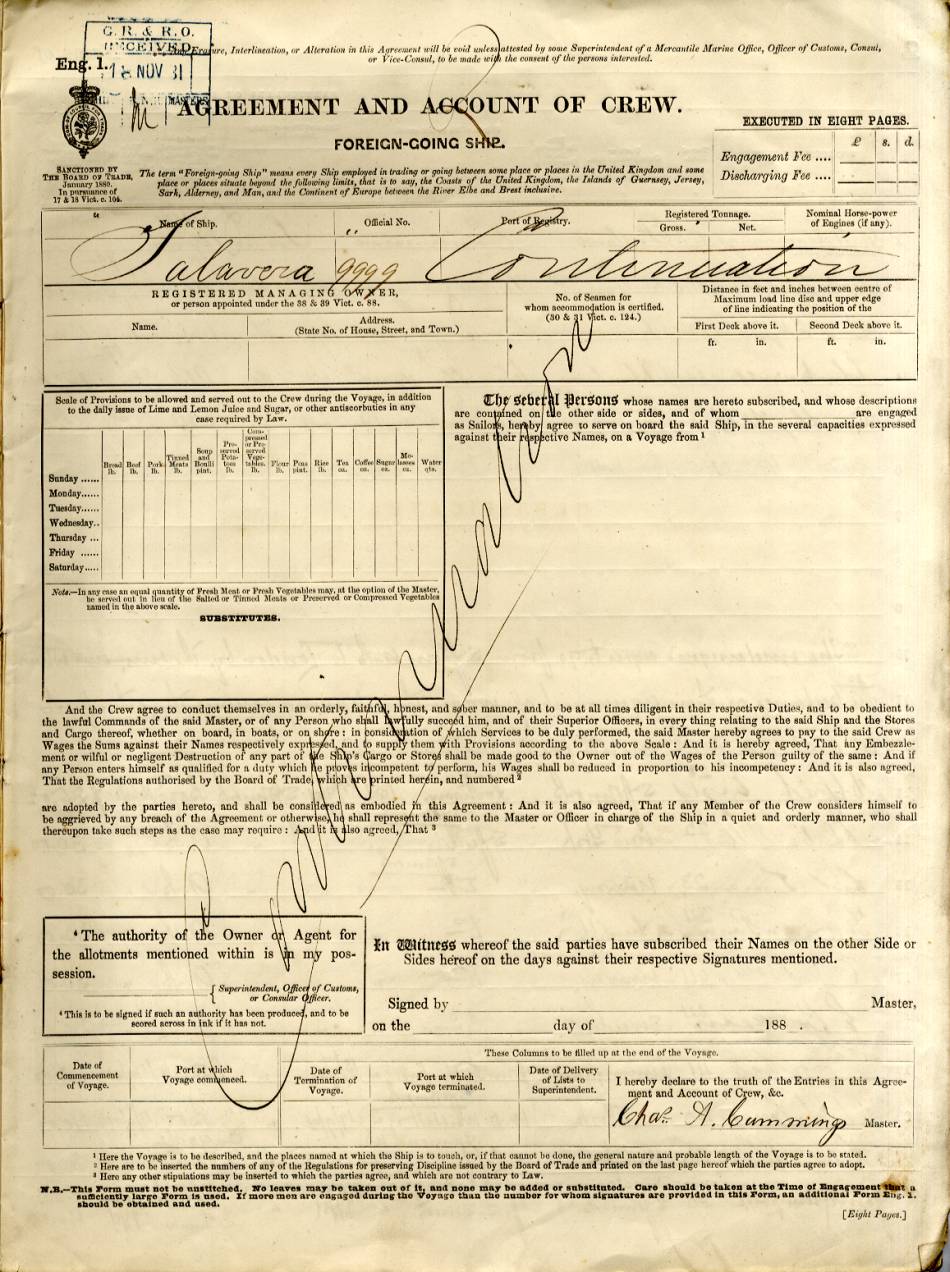 G. R. & R. O.
RECEIVED
18 NOV 81
MASTERS
Any Erasure, Interlineation, or Alteration in this Agreement will be void unless attested by some Superintendent of a Mercantile Marine Office, Officer of Customs, Consul,
or Vice-Consul, to be made with the consent of the persons interested.
Eng. 1.
AGREEMENT AND ACCOUNT OF CREW.
FOREIGN-GOING SHIP.
EXECUTED IN EIGHT PAGES.
£ s. d.
Engagement Fee ....
Discharging Fee ....
SANCTIONED BY
THE BOARD OF TRADE,
January 1880.
In pursuance of
17 & 18 Vict. c. 104.
The term "Foreign-going Ship" means every Ship employed in trading or going between some place or places in the United Kingdom and some
place or places situate beyond the following limits, that is to say, the Coasts of the United Kingdom, the Islands of Guernsey, Jersey,
Sark, Alderney, and Man, and the Continent of Europe between the River Elbe and Brest inclusive.
Name of Ship. Official No. Port of Registry. Registered Tonnage. Nominal Horse-power
Gross. Net. of Engines (if any).
Talavera 9999 Continuation
REGISTERED MANAGING OWNER,
or person appointed under the 38 & 39 Vict. c. 88.
No. of Seamen for
whom accommodation is certified.
(30 & 31 Vict. c. 124.)
Distance in feet and inches between centre of
Maximum load line disc and upper edge
of line indicating the position of the
Name. Address.
(State No. of House, Street, and Town.)
First Deck above it. Second Deck above it.
ft. in. ft. in.
Scale of Provisions to be allowed and served out to the Crew during the Voyage, in addition
to the daily issue of Lime and Lemon Juice and Sugar, or other antiscorbutics in any
case required by Law.
Bread lb. Beef lb. Pork lb. Tinned Meats lb. Soup and Bouilli pint. Preserved Potatoes lb. Compressed or Preserved Vegetables. lb. Flour lb. Peas pint. Rice lb. Tea oz. Coffee oz. Sugar oz. Molasses oz. Water qts.
Sunday ......
Monday......
Tuesday......
Wednesday..
Thursday ...
Friday ......
Saturday.....
Note.—In any case an equal quantity of Fresh Meat or Fresh Vegetables may, at the option of the Master,
be served out in lieu of the Salted or Tinned Meats or Preserved or Compressed Vegetables
named in the above scale.
SUBSTITUTES.
The several Persons whose names are hereto subscribed, and whose descriptions
are contained on the other side or sides, and of whom are engaged
as Sailors, hereby agree to serve on board the said Ship, in the several capacities expressed
against their respective Names, on a Voyage from 1
Continuation
And the Crew agree to conduct themselves in an orderly, faithful, honest, and sober manner, and to be at all times diligent in their respective Duties, and to be obedient to
the lawful Commands of the said Master, or of any Person who shall lawfully succeed him, and of their Superior Officers, in every thing relating to the said Ship and the Stores
and Cargo thereof, whether on board, in boats, or on shore : in consideration of which Services to be duly performed, the said Master hereby agrees to pay to the said Crew as
Wages the Sums against their Names respectively expressed, and to supply them with Provisions according to the above Scale : And it is hereby agreed, That any Embezzle-
ment or wilful or negligent Destruction of any part of the Ship's Cargo or Stores shall be made good to the Owner out of the Wages of the Person guilty of the same : And if
any Person enters himself as qualified for a duty which he proves incompetent to perform, his Wages shall be reduced in proportion to his incompetency : And it is also agreed,
That the Regulations authorised by the Board of Trade, which are printed herein, and numbered 2
are adopted by the parties hereto, and shall be considered as embodied in this Agreement : And it is also agreed, That if any Member of the Crew considers himself to
be aggrieved by any breach of the Agreement or otherwise, he shall represent the same to the Master or Officer in charge of the Ship in a quiet and orderly manner, who shall
thereupon take such steps as the case may require : And it is also agreed, That 3
4 The authority of the Owner or Agent for
the allotments mentioned within is in my pos-
session.
Superintendent, Officer of Customs,
or Consular Officer.
4 This is to be signed if such an authority has been produced, and to be
scored across in ink if it has not.
In Witness whereof the said parties have subscribed their Names on the other Side or
Sides hereof on the days against their respective Signatures mentioned.
Signed by Master,
on the day of 188 .
These Columns to be filled up at the end of the Voyage.
Date of
Commencement
of Voyage.
Port at which
Voyage commenced.
Date of
Termination of
Voyage.
Port at which
Voyage terminated.
Date of Delivery
of Lists to
Superintendent.
I hereby declare to the truth of the Entries in this Agree-
ment and Account of Crew, &c.
Chas. A. Cummings Master.
1 Here the Voyage is to be described, and the places named at which the Ship is to touch, or, if that cannot be done, the general nature and probable length of the Voyage is to be stated.
2 Here are to be inserted the numbers of any of the Regulations for preserving Discipline issued by the Board of Trade and printed on the last page hereof which the parties agree to adopt.
3 Here any other stipulations may be inserted to which the parties agree, and which are not contrary to Law.
N.B.—This Form must not be unstitched. No leaves may be taken out of it, and none may be added or substituted. Care should be taken at the Time of Engagement that a
sufficiently large Form is used. If more men are engaged during the Voyage than the number for whom signatures are provided in this Form, an additional Form Eng. 1.
should be obtained and used.
[Eight Pages.]